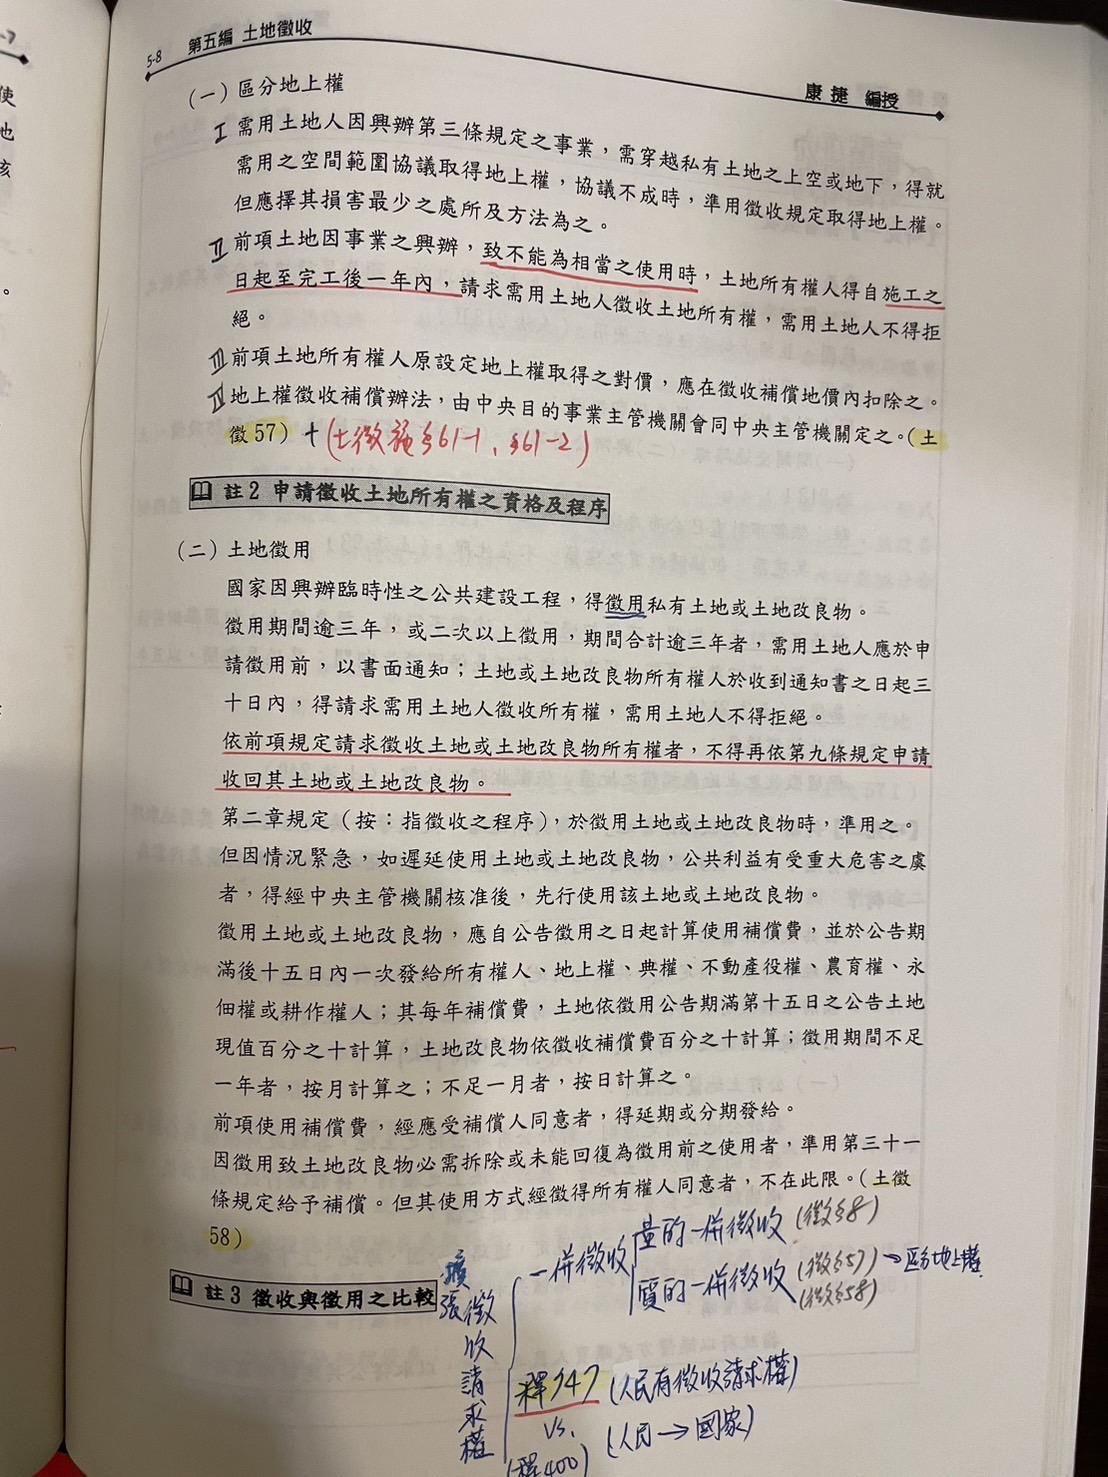 5-8 第五編 土地徵收
康捷 編授
（一）區分地上權
I 需用土地人因興辦第三條規定之事業，需穿越私有土地之上空或地下，得就
需用之空間範圍協議取得地上權，協議不成時，準用徵收規定取得地上權。
但應擇其損害最少之處所及方法為之。
II 前項土地因事業之興辦，致不能為相當之使用時，土地所有權人得自施工之
日起至完工後一年內，請求需用土地人徵收土地所有權，需用土地人不得拒
絕。
III 前項土地所有權人原設定地上權取得之對價，應在徵收補償地價內扣除之。
IV 地上權徵收補償辦法，由中央目的事業主管機關會同中央主管機關定之。（土
徵57）+（土徵施§61-1、§61-2）
註2 申請徵收土地所有權之資格及程序
（二）土地徵用
國家因興辦臨時性之公共建設工程，得徵用私有土地或土地改良物。
徵用期間逾三年，或二次以上徵用，期間合計逾三年者，需用土地人應於申
請徵用前，以書面通知；土地或土地改良物所有權人於收到通知書之日起三
十日內，得請求需用土地人徵收所有權，需用土地人不得拒絕。
依前項規定請求徵收土地或土地改良物所有權者，不得再依第九條規定申請
收回其土地或土地改良物。
第二章規定（按：指徵收之程序），於徵用土地或土地改良物時，準用之。
但因情況緊急，如遲延使用土地或土地改良物，公共利益有受重大危害之虞
者，得經中央主管機關核准後，先行使用該土地或土地改良物。
徵用土地或土地改良物，應自公告徵用之日起計算使用補償費，並於公告期
滿後十五日內一次發給所有權人、地上權、典權、不動產役權、農育權、永
佃權或耕作權人；其每年補償費，土地依徵用公告期滿第十五日之公告土地
現值百分之十計算，土地改良物依徵收補償費百分之十計算；徵用期間不足
一年者，按月計算之；不足一月者，按日計算之。
前項使用補償費，經應受補償人同意者，得延期或分期發給。
因徵用致土地改良物必需拆除或未能回復為徵用前之使用者，準用第三十一
條規定給予補償。但其使用方式經徵得所有權人同意者，不在此限。（土徵
58）
註3 徵收與徵用之比較
擴張徵收請求權
一併徵收
量的一併徵收（徵§8）
質的一併徵收（徵§57）→區分地上權
（徵§58）
釋747（人民有徵收請求權）
vs.（人民→國家）
（釋400）